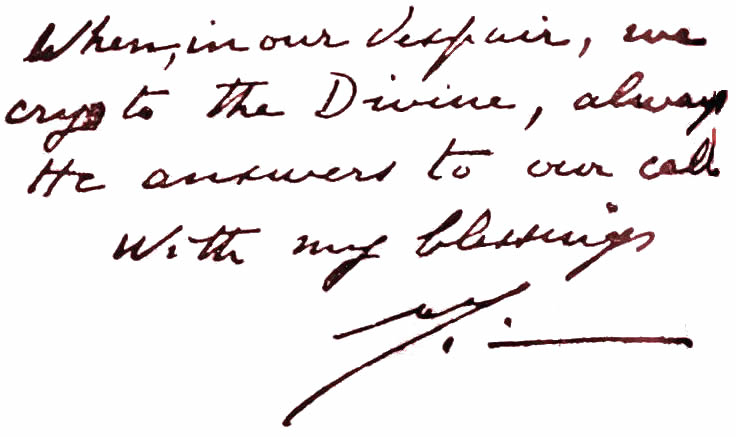 When, in our despair, we
cry to the Divine, always
He answers to our call
With my blessings